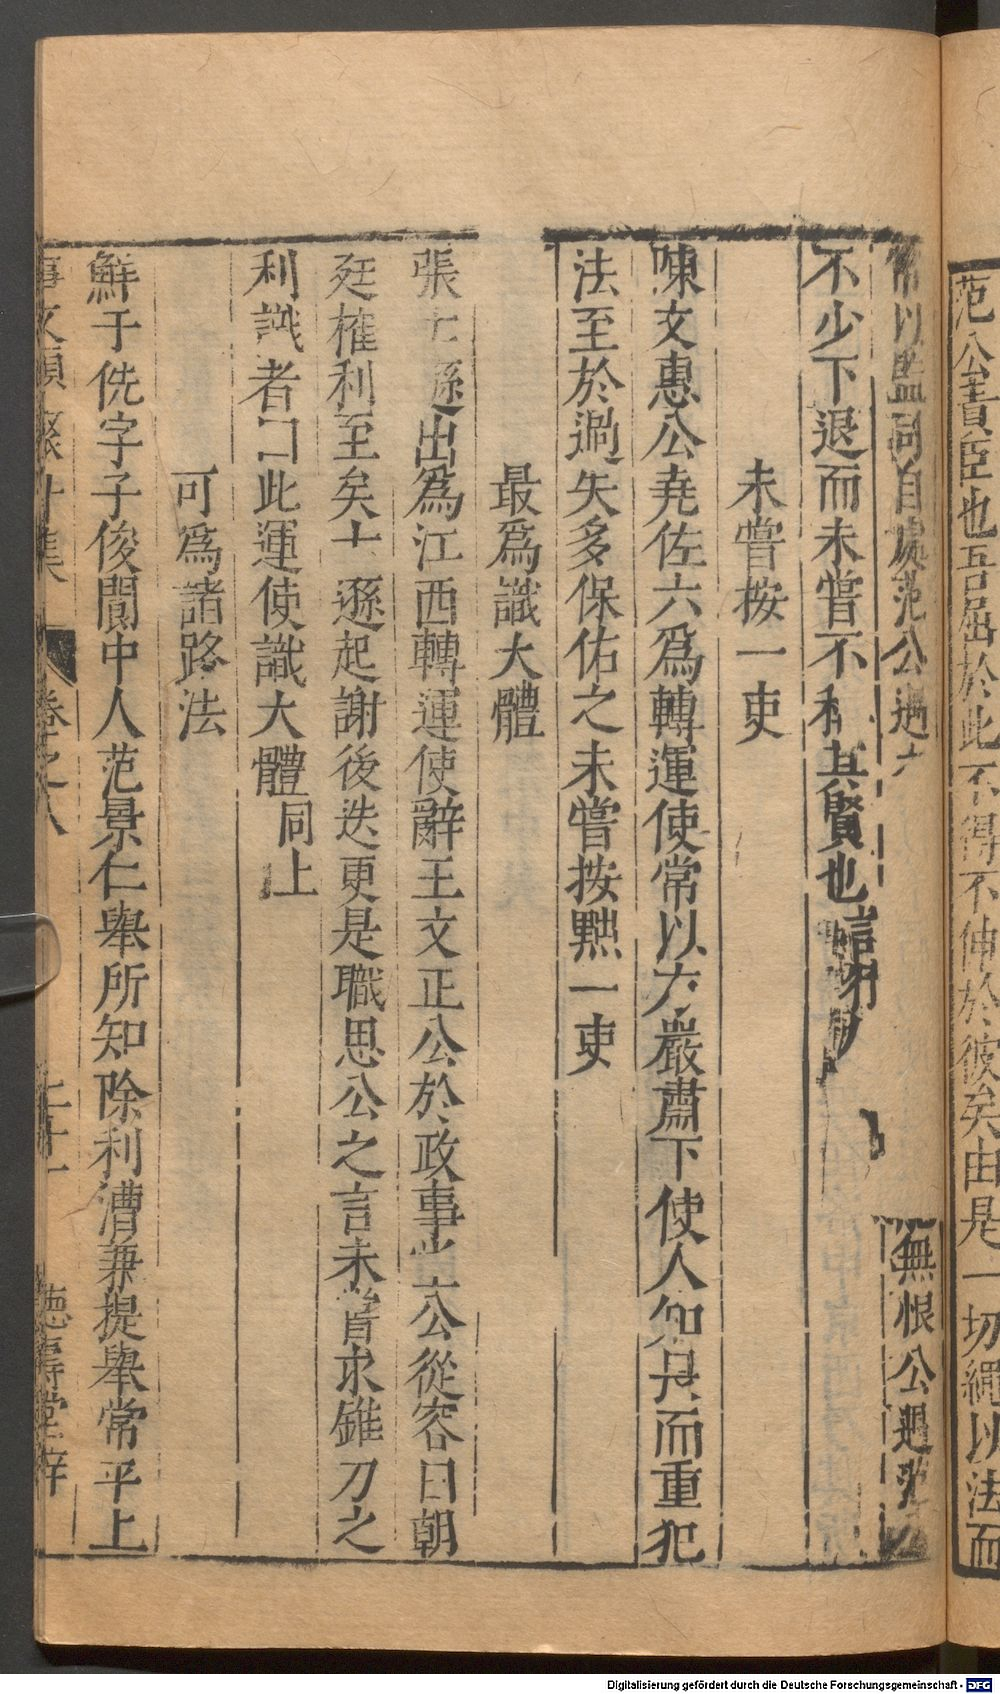 范公責臣也吾屈於此不得不伸於彼矣由是一切繩以法而
常以監司自處范公遇 無恨公遇范
不少下退而未嘗不稱其賢也
未嘗按一吏
陳文惠公堯佐六爲轉運使常以方嚴肅下使人知 而重犯
法至於過失多保佑之未嘗按黜一吏
最爲識大體
張士遜出爲江西轉運使辭王文正公於政事堂公從容曰朝
廷榷利至矣士遜起謝後迭更是職思公之言未嘗求錐刀之
利識者曰此運使識大體同上
可爲諸路法
鮮于侁字子俊閬中人范景仁舉所知除利漕兼提舉常平上
事文類聚外集 卷之八 二十一 德壽堂梓
Digitalisierung gefördert durch die Deutsche Forschungsgemeinschaft - DFG